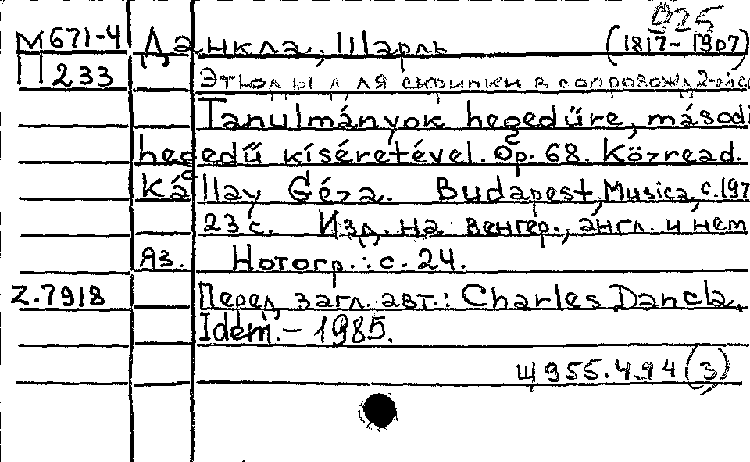 025
М671-4 Данкла, Шарль (1817-1907)
П 233 Этюды для скрипки в сопровожд. 2-й
Tanulmányok hegedűre, másodi
hegedű kíséretével. Op. 68. Közread.
Kállay Géza. Budapest, Musica, c. 197
23 с. Изд. на венгер., англ. и нем
яз. Нотогр.: с. 24.
Z.7918 Перед загл. авт.: Charles Dancla.
Idem. – 1985.
Щ 955.494 (3)